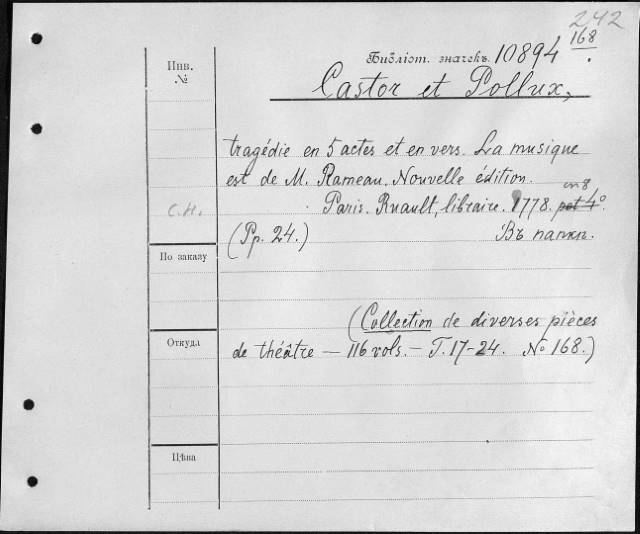 242
Библіот. значекъ. 10894 168.
Инв. №
Castor et Pollux,
tragédie en 5 actes et en vers. La musique
est de M. Rameau. Nouvelle édition.
in 8
С.Н. Paris. Ruault, libraire. 1778. pet 4º.
(Pp. 24.) Въ папкѣ.
По заказу
(Collection de diverses pièces
Откуда
de théâtre — 116 vols. — T. 17-24. № 168.)
Цѣна